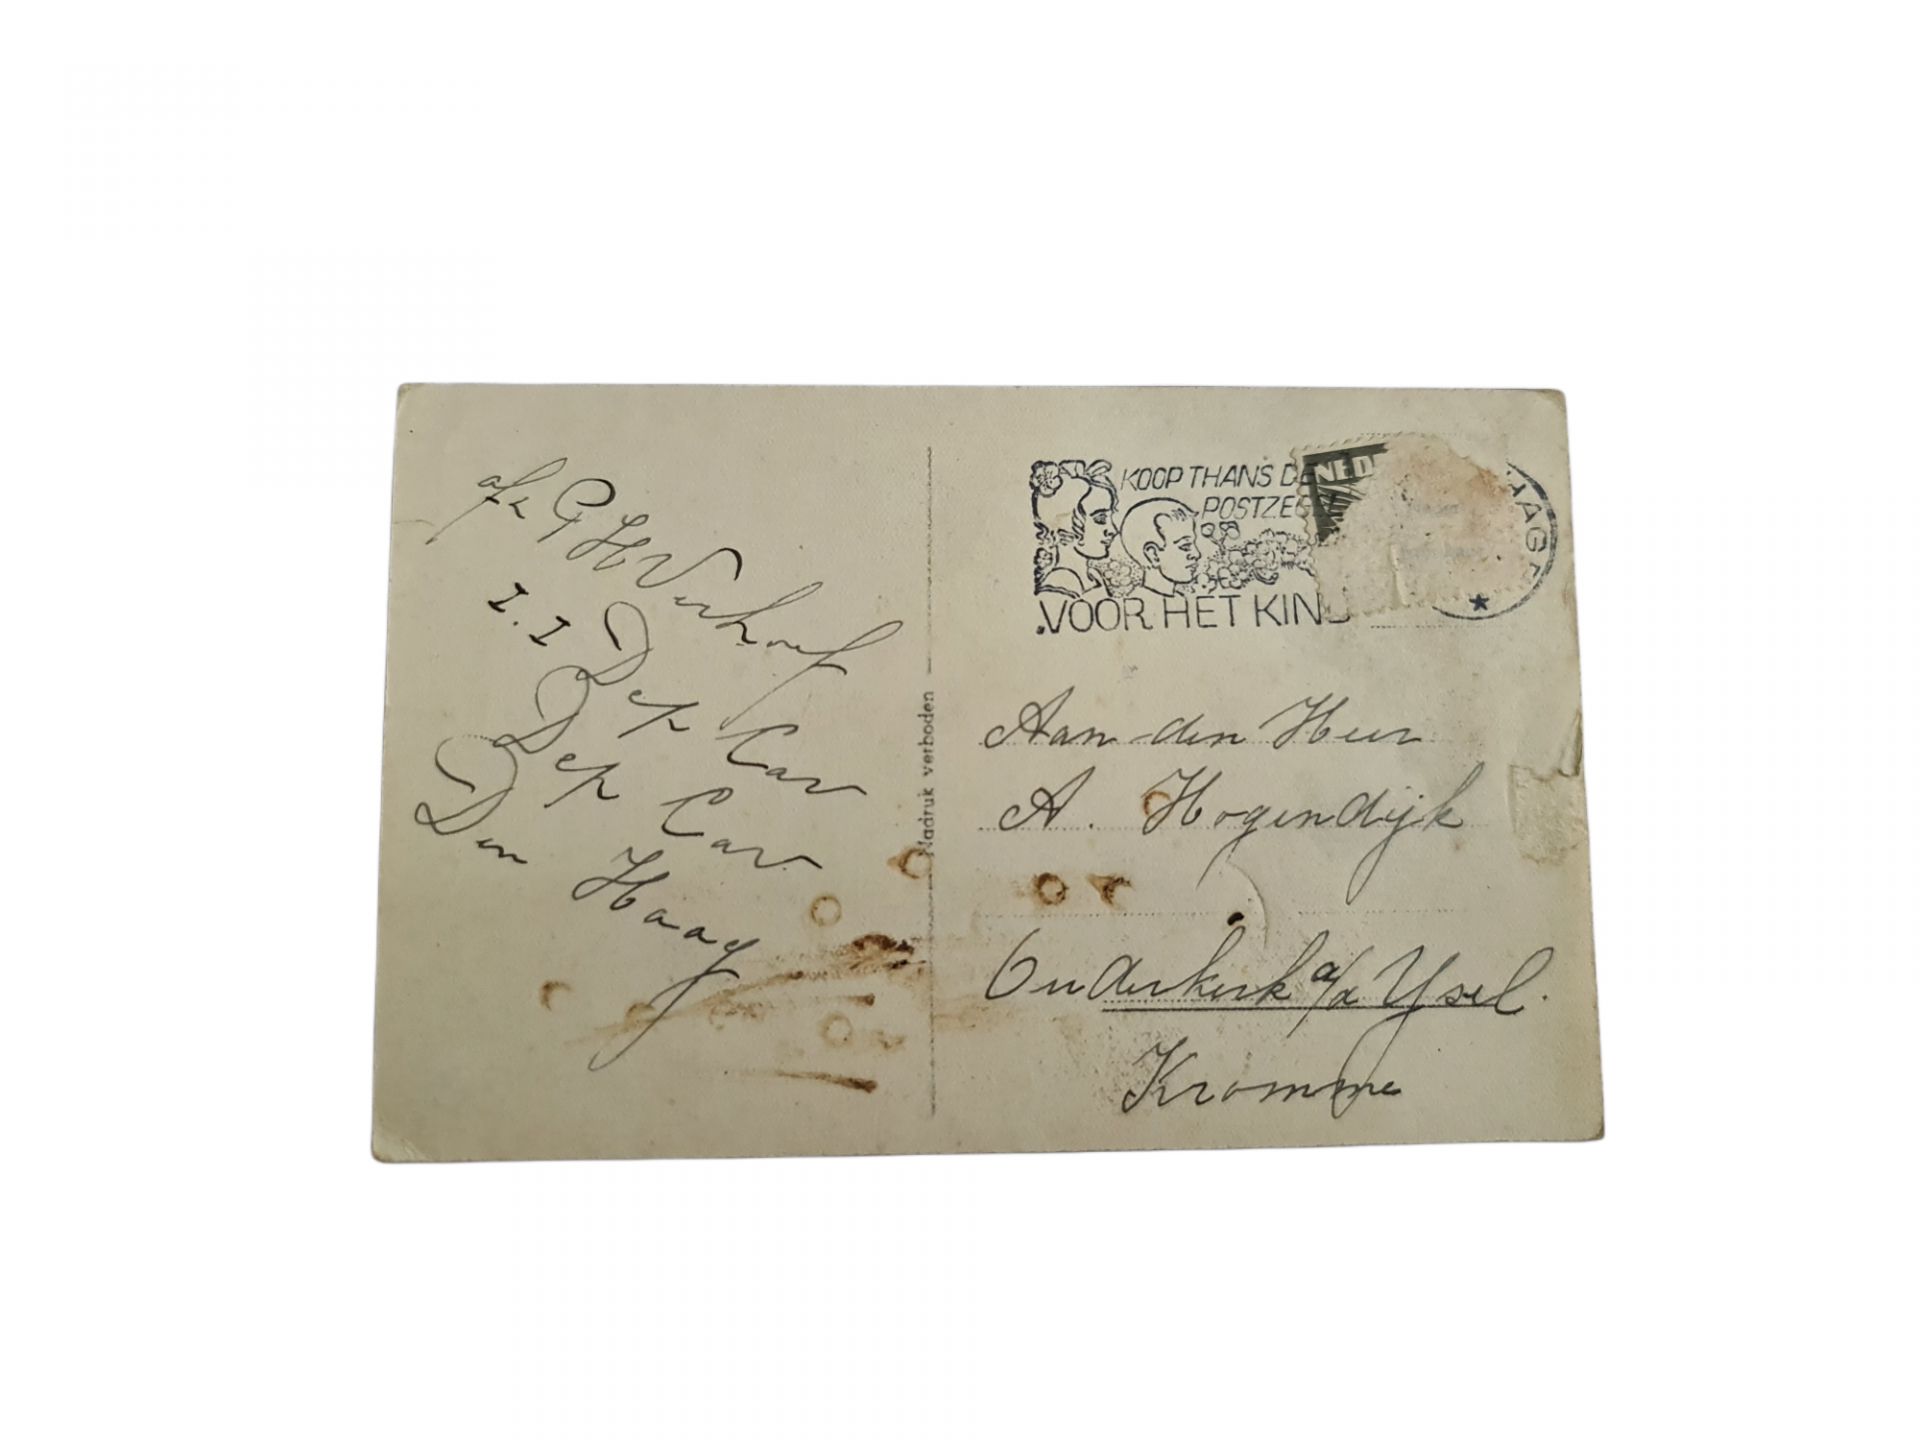 afz G H Verhoef
I. I Dep Cav
Dep Cav
Den Haag
Nadruk verboden
KOOP THANS DE
POSTZEG
VOOR HET KIND
NED
AAG
Aan den Heer
A. Hogendijk
Ouderkerk a/d Ysel.
Kromme